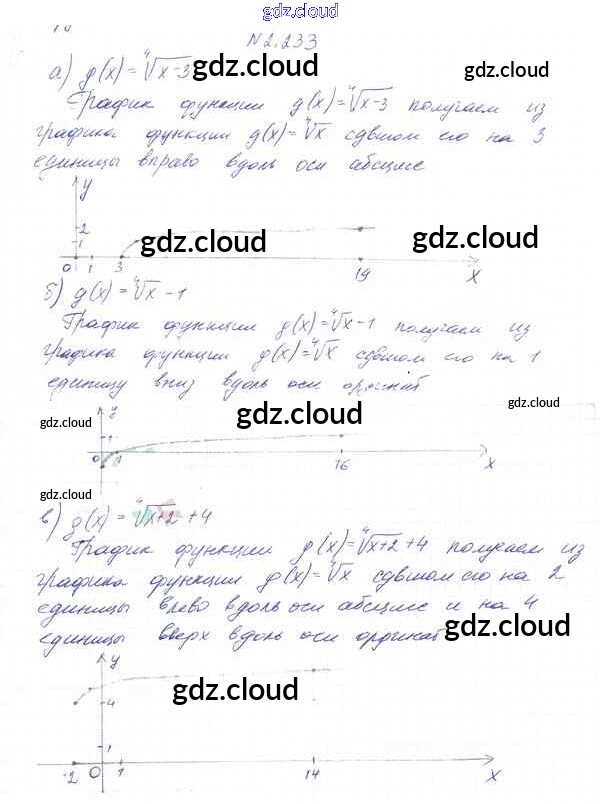 gdz.cloud
N 2.233
а) g(x) = ∜x-3 gdz.cloud gdz.cloud
График функции g(x)=∜x-3 получаем из
графика функции g(x)=∜x сдвигом его на 3
единицы вправо вдоль оси абсцисс
y
2
1
gdz.cloud gdz.cloud
0 1 3 19 x
б) g(x) = ∜x - 1
График функции g(x)=∜x-1 получаем из
графика функции g(x)=∜x сдвигом его на 1
единицу вниз вдоль оси ординат
gdz.cloud gdz.cloud gdz.cloud
y
1
0 1 16 x
gdz.cloud
в) g(x) = ∜x+2 +4
График функции g(x)=∜x+2 +4 получаем из
графика функции g(x)=∜x сдвигом его на 2
единицы влево вдоль оси абсцисс и на 4
единицы вверх вдоль оси ординат gdz.cloud
y
gdz.cloud
4
1
-2 0 1 14 x